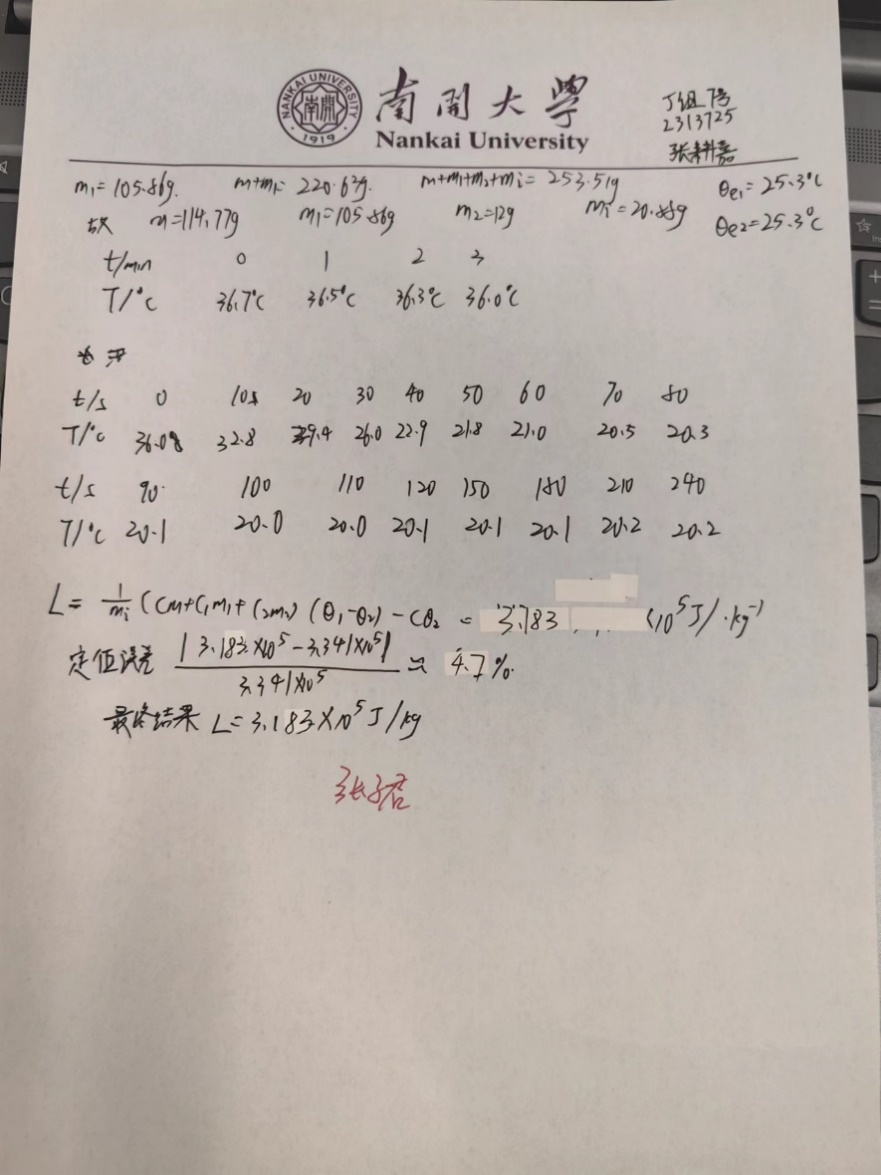 NANKAI UNIVERSITY 南開 1919
南開大學
Nankai University
丁组 7号
2313725
张耕嘉
m₁=105.86g. m+m₁= 220.63g. m+m₁+m₂+mᵢ= 253.51g θe₁=25.3℃
故 m=114.77g m₁=105.86g m₂=12g mᵢ=20.88g θe₂=25.3℃
t/min 0 1 2 3
T/℃ 36.7℃ 36.5℃ 36.3℃ 36.0℃
t/s 0 10s 20 30 40 50 60 70 80
T/℃ 36.0 32.8 29.4 26.0 22.9 21.8 21.0 20.5 20.3
t/s 90 100 110 120 150 180 210 240
T/℃ 20.1 20.0 20.0 20.1 20.1 20.1 20.2 20.2
L= 1/mᵢ (cm+c₁m₁+c₂m₂)(θ₁-θ₂)-cθ₂ = 3.783 ×10⁵J/·kg⁻¹
定值误差 |3.183×10⁵-3.341×10⁵|/3.341×10⁵ ≈ 4.7%.
最终结果 L=3.183×10⁵J/kg
张子君